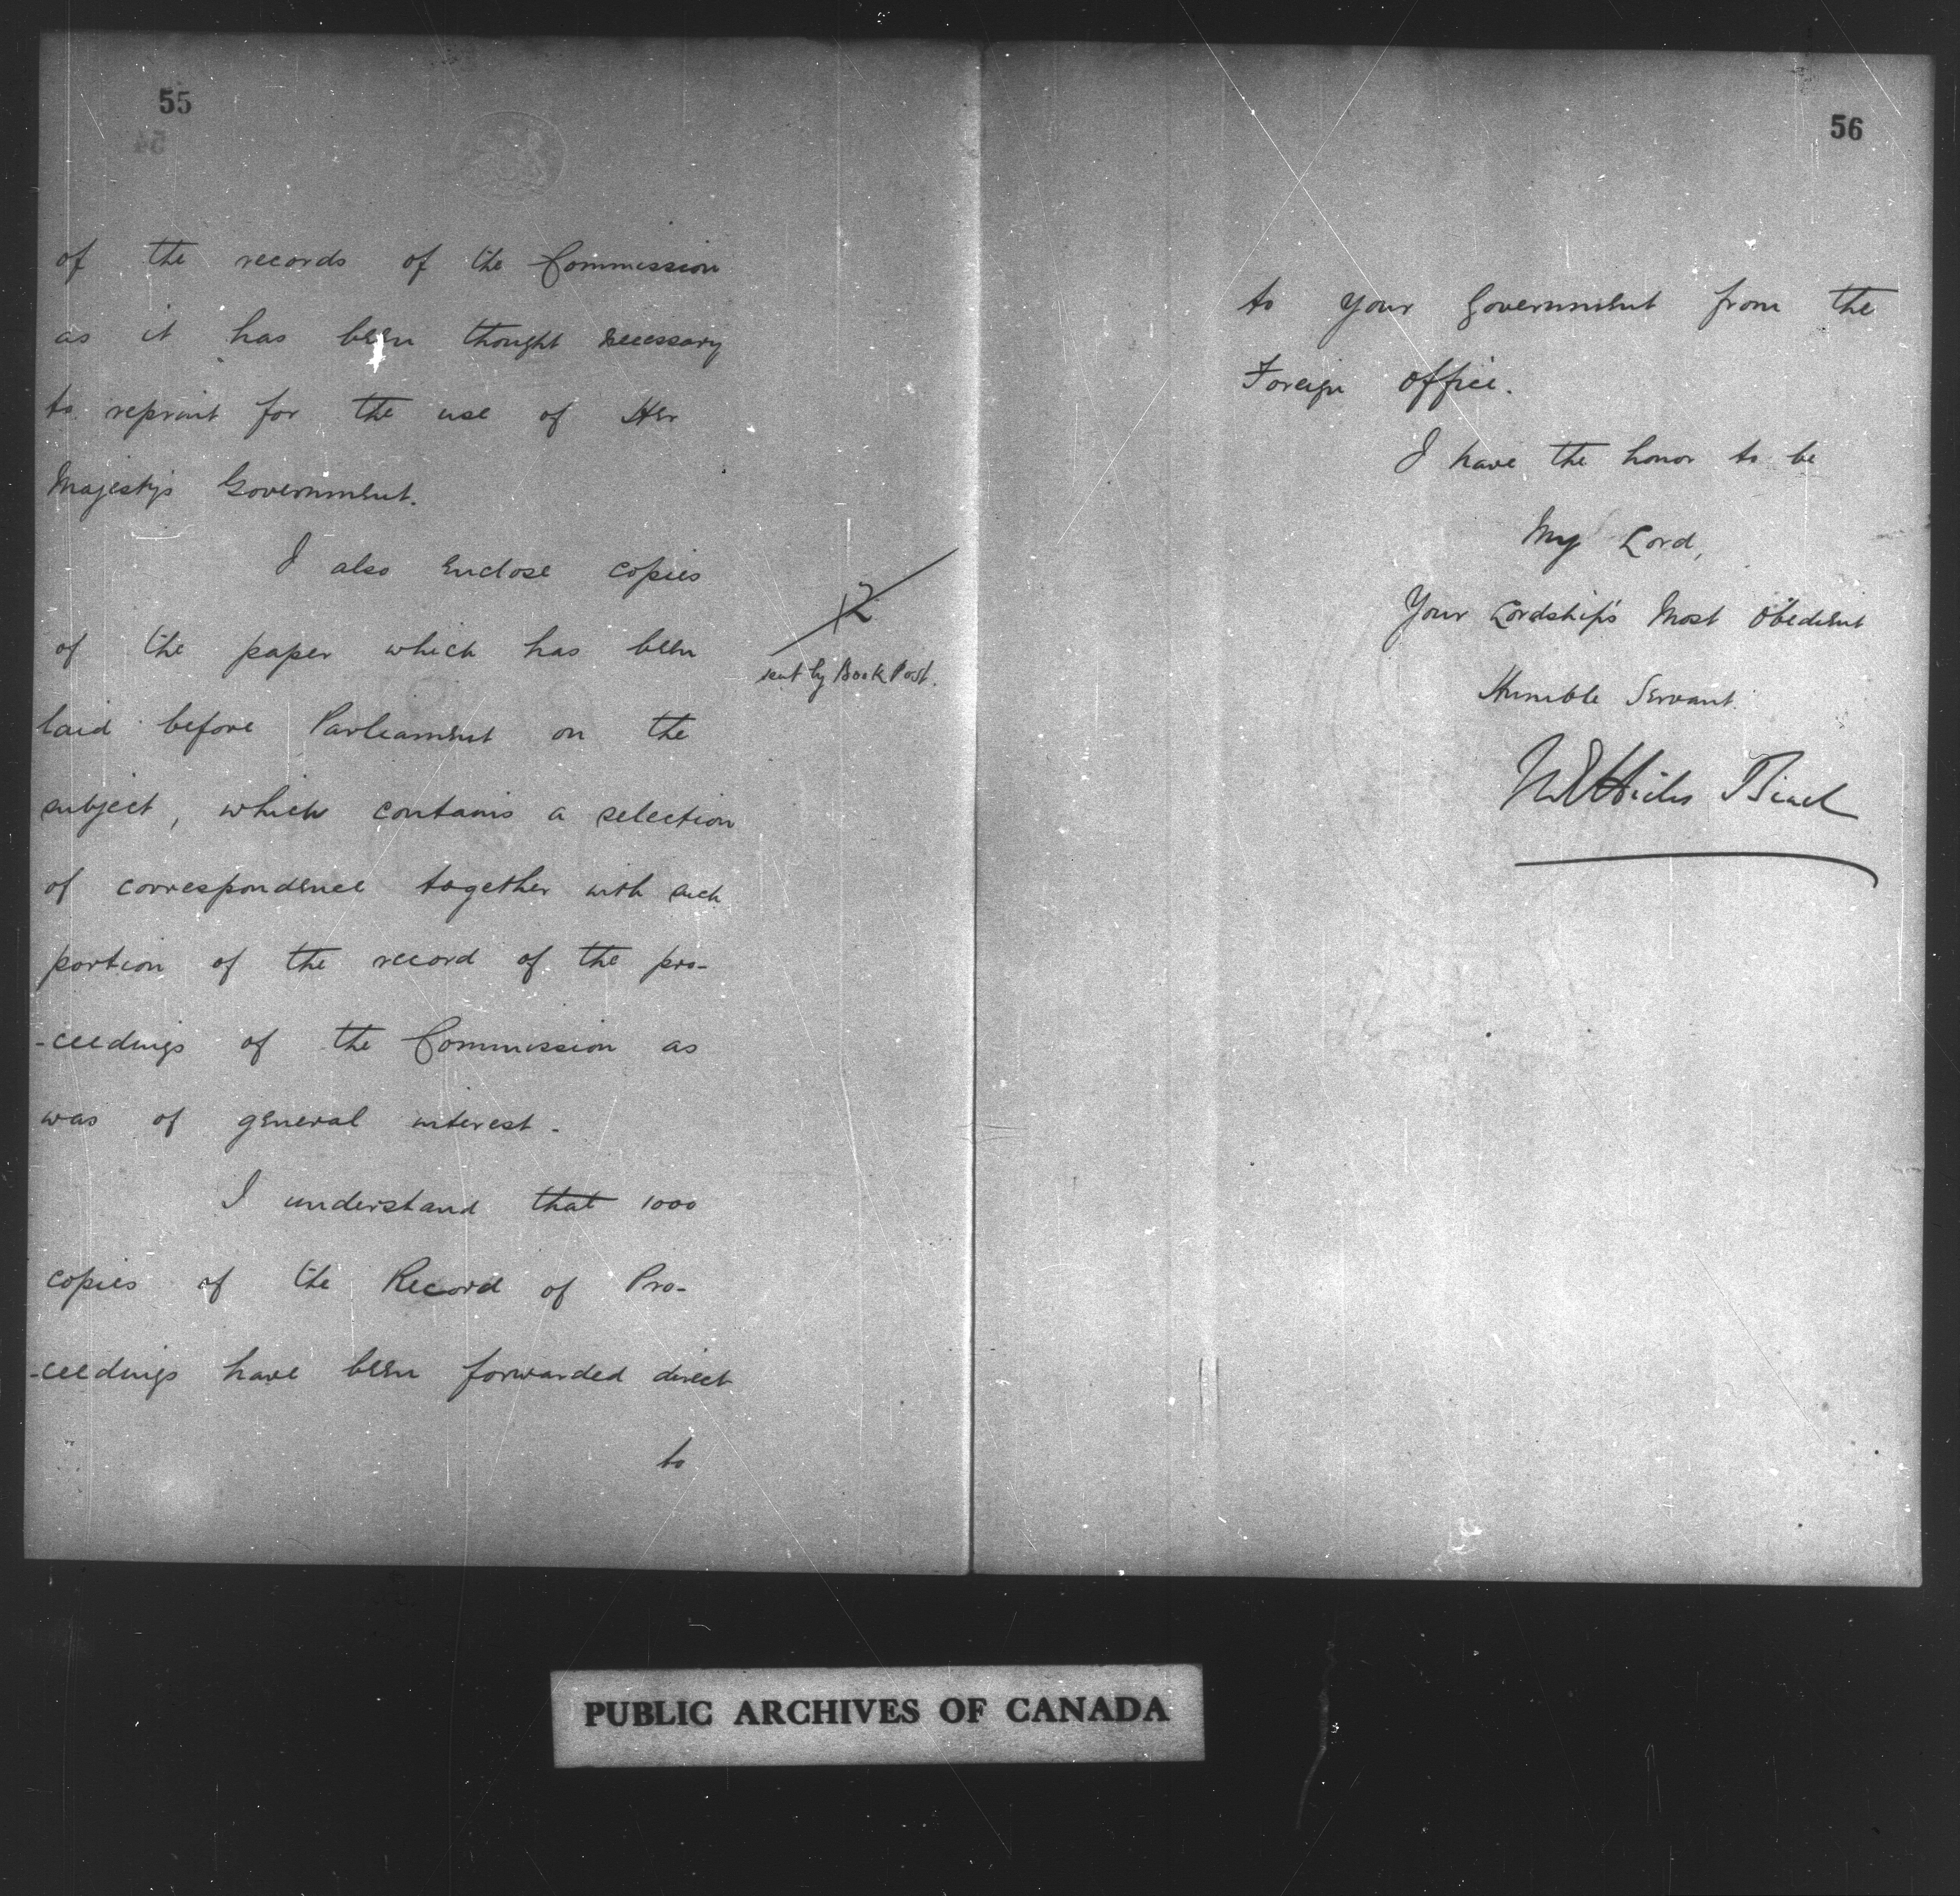 55
of the records of the Commission
as it has been thought necessary
to reprint for the use of Her
Majesty's Government.
I also enclose copies
of the paper which has been
laid before Parliament on the
subject, which contains a selection
of correspondence together with such
portion of the record of the pro-
-ceedings of the Commission as
was of general interest.
I understand that 1000
copies of the Record of Pro-
-ceedings have been forwarded direct
to
12
sent by Book Post.
56
to your Government from the
Foreign Office.
I have the honor to be
My Lord,
Your Lordship's Most Obedient
Humble Servant.
M E Hicks Beach
PUBLIC ARCHIVES OF CANADA